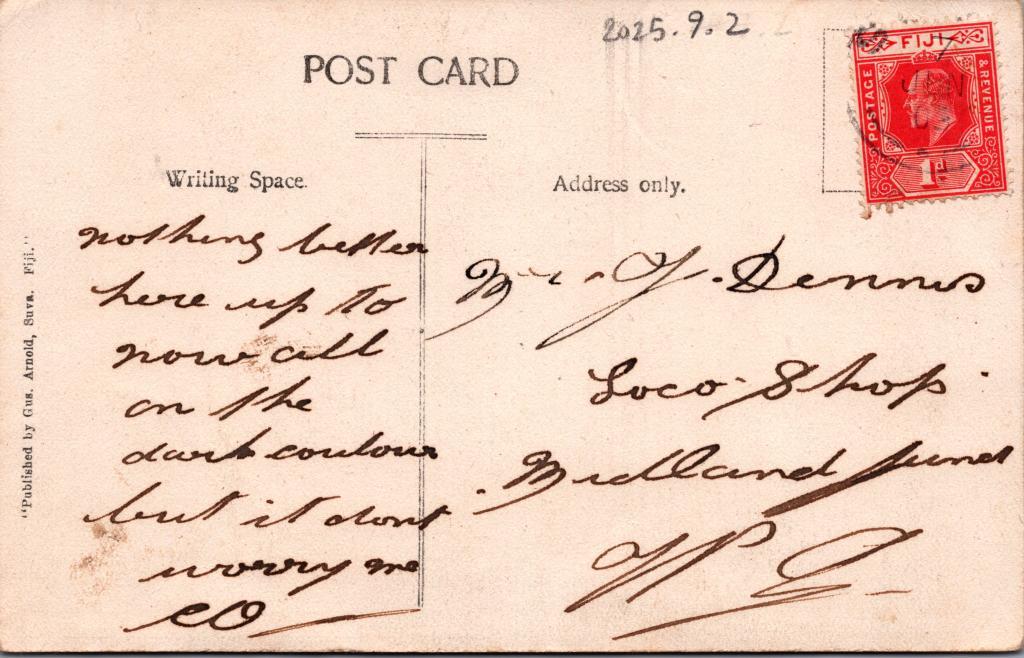 2025.9.2
POST CARD
FIJI
POSTAGE
& REVENUE
7
JAN
1d
Writing Space.
Address only.
nothing better
here up to
now all
on the
dark coulour
but it dont
worry me
EO
Mr. J. Dennis
Loco Shop.
Midland Junct
W A
"Published by Gus. Arnold, Suva. Fiji."